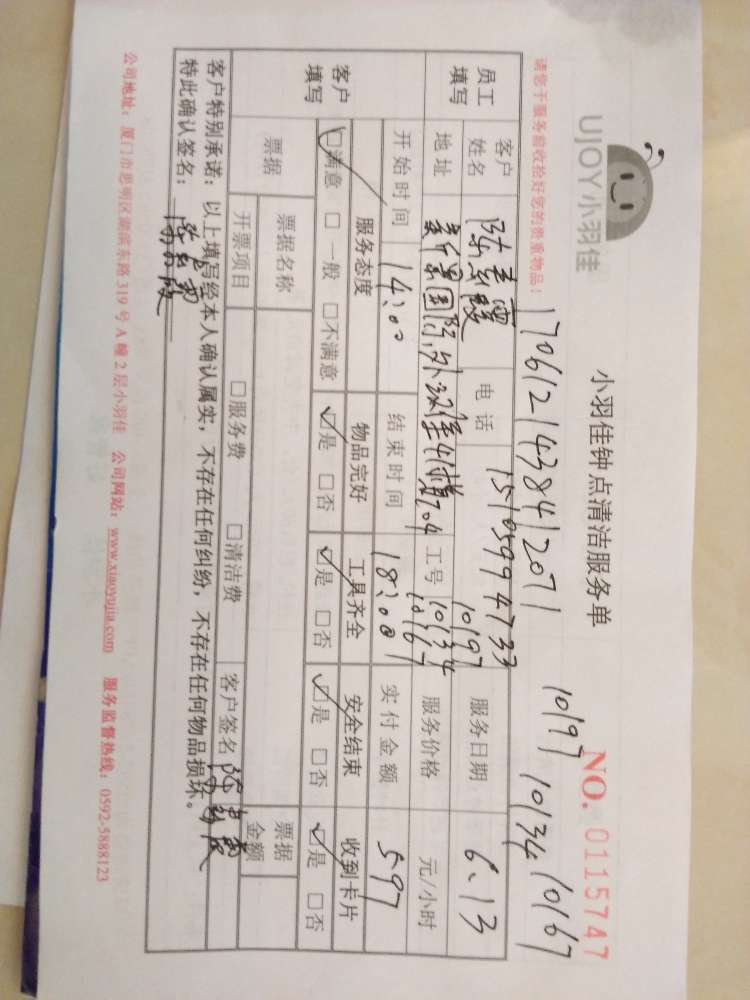 UJOY小羽佳
小羽佳钟点清洁服务单
NO. 0115747
请您于服务前收拾好您的贵重物品!
17061214384120711
10197 10134 10167
员工填写 客户姓名 陈 霞 电话 15105994733 服务日期 6.13
地址 新景国际外滩 704 工号 10197 10134 10167 服务价格 元/小时
客户填写 开始时间 14:00 结束时间 18:00 实付金额 597
服务态度 物品完好 工具齐全 安全结束 收到卡片
☑满意 □一般 □不满意 ☑是 □否 ☑是 □否 ☑是 □否 ☑是 □否
票据 票据名称 票据金额
开票项目 □服务费 □清洁费 客户签名
客户特别承诺：以上填写经本人确认属实，不存在任何纠纷，不存在任何物品损坏。
特此确认签名：
公司地址：厦门市思明区湖滨东路319号A幢2层小羽佳 公司网站：www.xiaoyujia.com 服务监督热线：0592-5888123